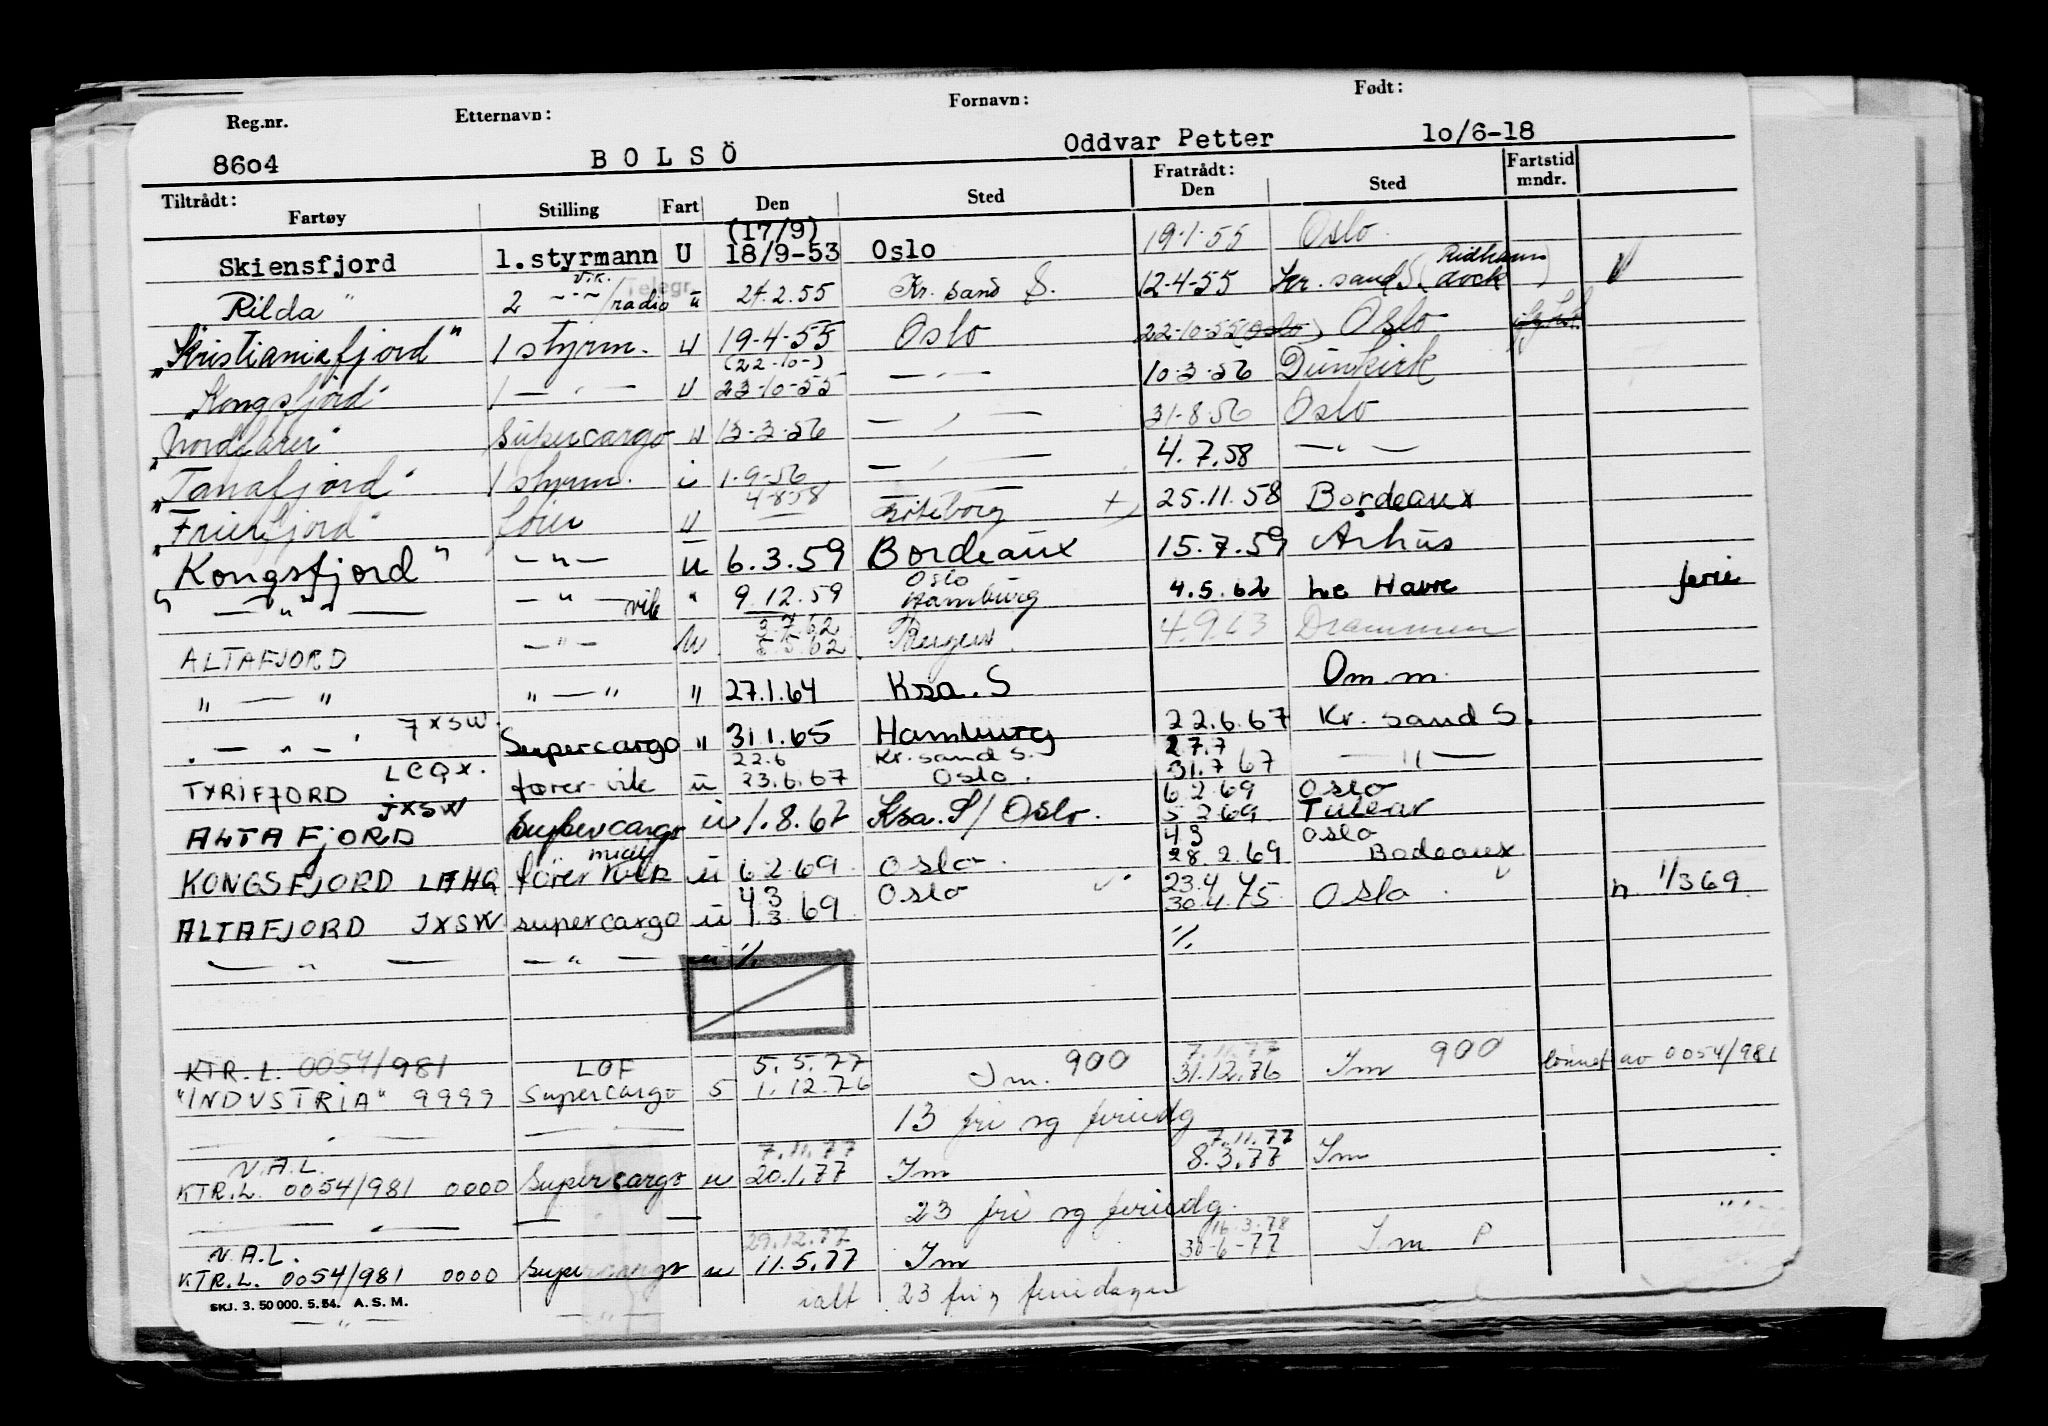 Reg.nr. Etternavn: Fornavn: Født:
8604 BOLSÖ Oddvar Petter 10/6-18
Tiltrådt: Fratrådt: Fartstid mndr.
Fartøy Stilling Fart Den Sted Den Sted
(17/9)
Skiensfjord 1.styrmann U 18/9-53 Oslo 19-1-55 Oslo
Rilda " 2 -"- vik. / radio Telegr. u 24.2.55 Kr. sand S. 12-4-55 Kr. sand S. ( dock )
"Kristianiafjord" 1 styrm. u 19-4-55 Oslo 22-10-55 (Oslo) Oslo
(22-10-)
"Kongsfjord" 1 — " — u 23-10-55 — " — 10-3-56 Dunkirk
"Nordfarer" supercargo u 13-3-56 — " — 31-8-56 Oslo
"Tanafjord" 1 styrm. 1-9-56 — " — 4.7.58 — " —
"Frierfjord" fører u 4-8-58 Göteborg 25.11.58 Bordeaux
"Kongsfjord" — " — u 6.3.59 Bordeaux 15.7.59 Århus
Oslo
" — " — — " — vik " 9.12.59 Hamburg 4.5.62 Le Havre ferie
3.7.62
ALTAFJORD — " — u 5.5.62 Bergen 4.9.63 Drammen
" — " " — " " 27.1.64 Ksa. S Om.m.
" — " — " JXSW. Supercargo " 31.1.65 Hamburg 22.6.67 Kr. sand S.
22.6 Kr. sand S. 27.7
TYRIFJORD LCQX. fører-vik u 23.6.67 Oslo. 31.7 67 — " —
6 2 69 Oslo
ALTAFJORD JXSW supercargo u 1.8.67 Ksa. S/ Oslo. 5 2 69 Tulear
4 3 Oslo
KONGSFJORD LFHQ fører vik u 6 2 69 Oslo 28.2.69 Bodeaux
4 3 23.4
ALTAFJORD JXSW supercargo u 1.3.69 Oslo 30.4.75 Oslo. n. 1/3 69
— " — — " — u ./. ./.
KTR.L. 0054/981 LOF 5.5.77 7.11.77
"INDUSTRIA" 9999 Supercargo 5 1.12.76 Im. 900 31.12.76 Im 900 lønnet av 0054/981
— " — — " — 13 fri og feriedg
N.A.L. 7.11.77 7.11.77
KTR.L. 0054/981 0000 Supercargo u 20.1.77 Im 8.3.77 Im
— " — — " — 23 fri og feriedg.
N.A.L. 29.12.77 16.3.78
KTR.L. 0054/981 0000 Supercargo u 11.5.77 Im 30-6-77 Im P
SKJ. 3. 50 000. 5. 54. A. S. M. ialt 23 fri og feriedager
— " — — " —